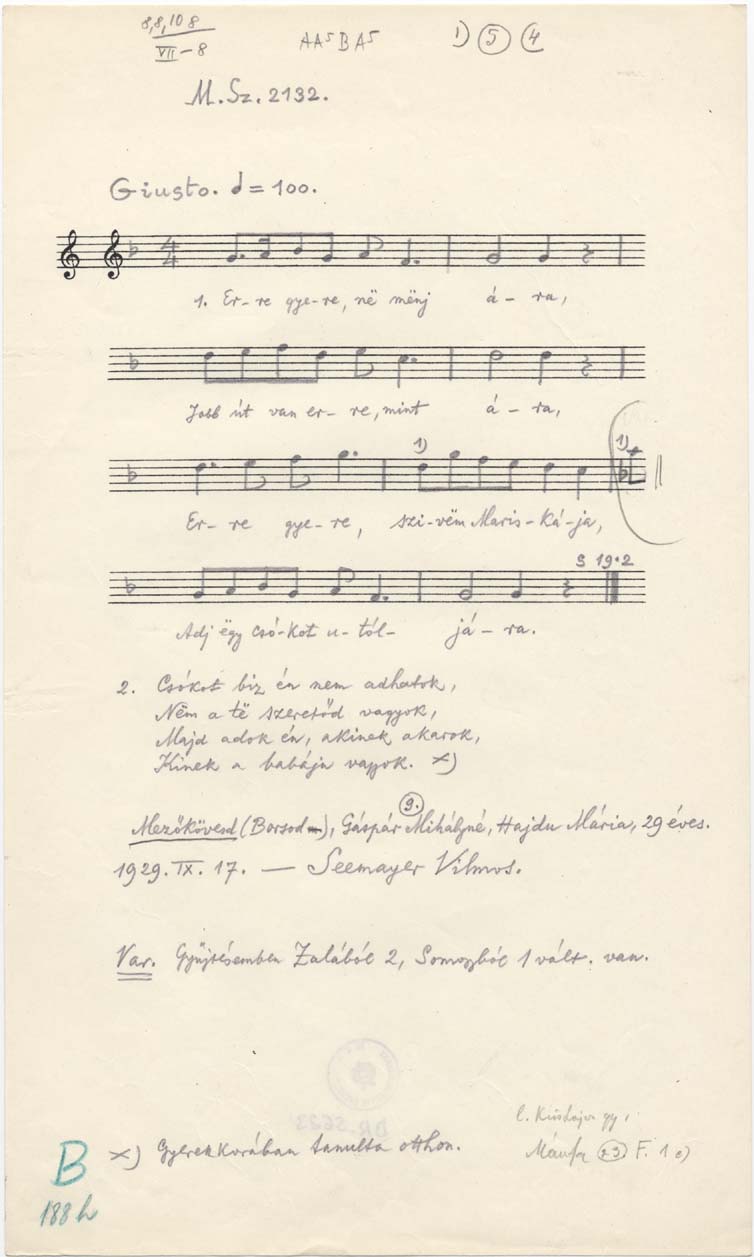 8,8,10 8
VII-8
AA⁵BA⁵
1) 5 4
M. Sz. 2132.
Giusto. = 100.
4 4
1. Er-re gye-re, në mënj á-ra,
Jobb út van er-re, mint á-ra,
1) 1)
Er-re gye-re, szi-vëm Maris-ká-ja,
S 19·2
Adj ëgy csó-kot u-tól-já-ra.
2. Csókot biz én nem adhatok,
Nëm a të szeretőd vagyok,
Majd adok én, akinek akarok,
Kinek a babája vagyok. x)
Mezőkövesd (Borsod), Gáspár Mihályné, Hajdu Mária, 29 éves.
9.
1929. IX. 17. — Seemayer Vilmos.
Var. Gyüjtésemben Zalából 2, Somogyból 1 vált. van.
x) Gyerekkorában tanulta otthon.
F. 1
B
188 h